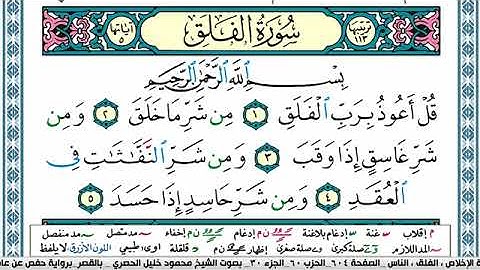 ترتيبها ١١٣ سُورَةُ الْفَلَقِ آياتها ٥
بِسْمِ اللَّهِ الرَّحْمَٰنِ الرَّحِيمِ
قُلْ أَعُوذُ بِرَبِّ الْفَلَقِ ١ مِن شَرِّ مَا خَلَقَ ٢ وَمِن
شَرِّ غَاسِقٍ إِذَا وَقَبَ ٣ وَمِن شَرِّ النَّفَّاثَاتِ فِي
الْعُقَدِ ٤ وَمِن شَرِّ حَاسِدٍ إِذَا حَسَدَ ٥
م إقلاب غنة إدغام بلاغنة ن م إدغام ن م إخفاء مد متصل مد منفصل
المد اللازم صلة كبرى صلة صغرى إظهار ن م قلقلة اوى: طبيعي اللون الأزرق لا يلفظ
الإخلاص , الفلق , الناس _ الصفحة ٦٠٤_ الحزب ٦٠_ الجزء ٣٠_ بصوت الشيخ محمود خليل الحصري _ بالقصر_ برواية حفص عن